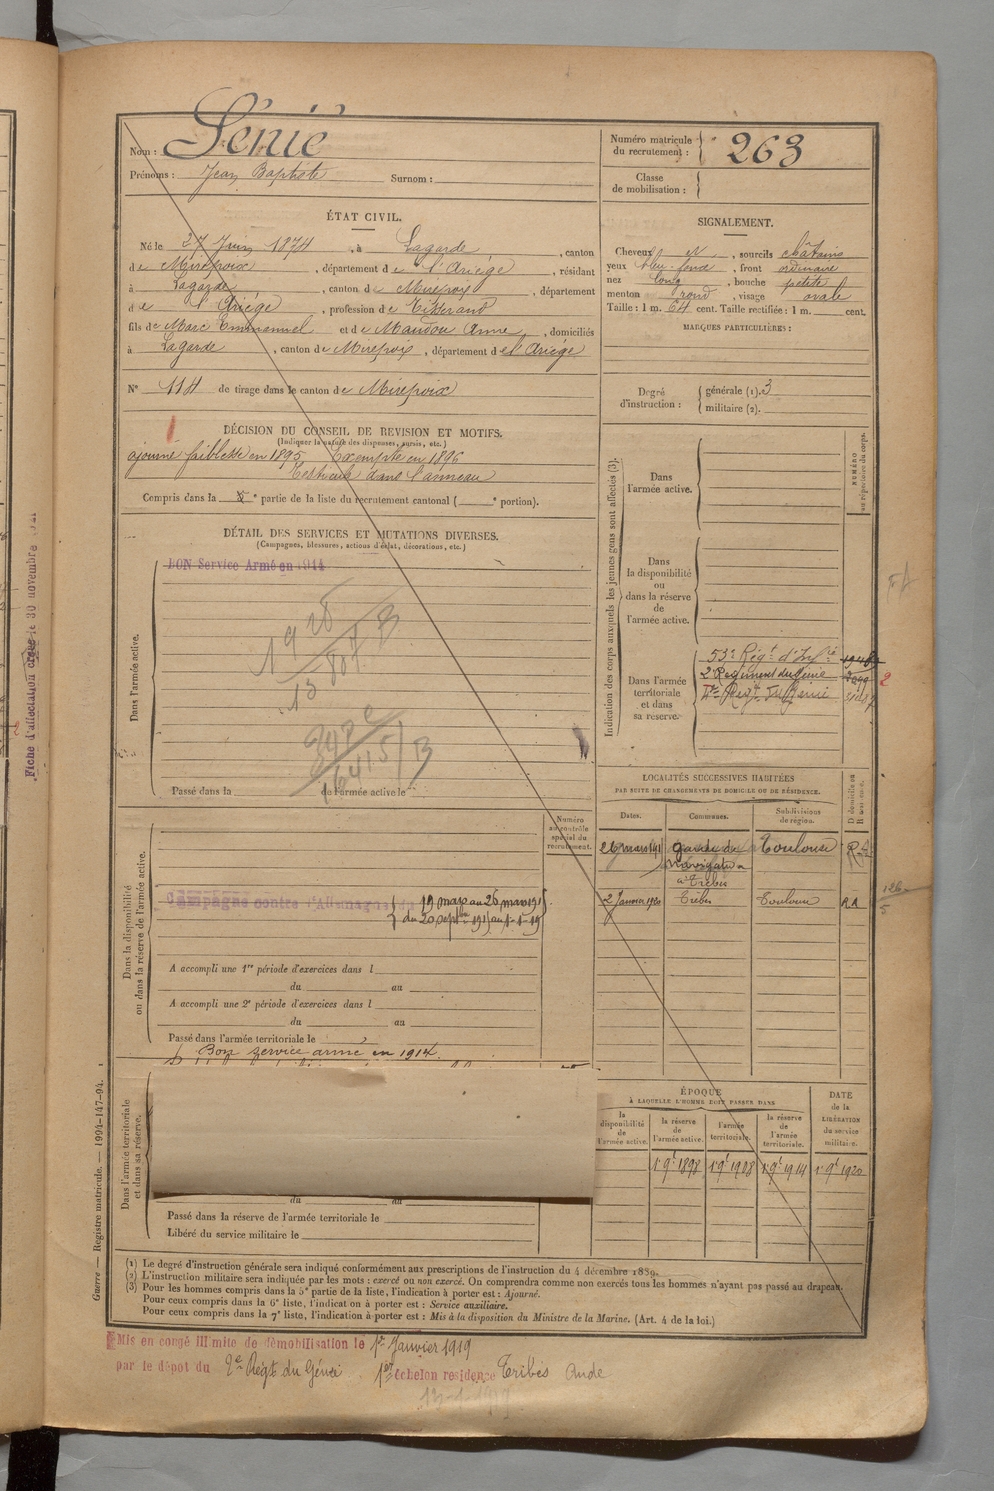 Nom : Sénié
Prénoms : Jean Baptiste Surnom :
Numéro matricule du recrutement : 263
Classe de mobilisation :
ÉTAT CIVIL.
Né le 27 Juin 1874, à Lagarde, canton
de Mirepoix, département de l'Ariége, résidant
à Lagarde, canton de Mirepoix, département
de l'Ariége, profession de Tisserand
fils de Marc Emmanuel et de Maudou Anne, domiciliés
à Lagarde, canton de Mirepoix, département de l'Ariége
N° 114 de tirage dans le canton de Mirepoix
SIGNALEMENT.
Cheveux et, sourcils châtains
yeux bleu foncé, front ordinaire
nez long, bouche petite
menton rond, visage ovale
Taille : 1 m. 64 cent. Taille rectifiée : 1 m. cent.
MARQUES PARTICULIÈRES :
Degré d'instruction : générale (1). 3
militaire (2).
DÉCISION DU CONSEIL DE REVISION ET MOTIFS.
(Indiquer la nature des dispenses, sursis, etc.)
ajourné faiblesse en 1895 Exempté en 1896
Testicule dans l'anneau
Compris dans la e partie de la liste du recrutement cantonal ( e portion).
DÉTAIL DES SERVICES ET MUTATIONS DIVERSES.
(Campagnes, blessures, actions d'éclat, décorations, etc.)
BON Service Armé en 1914
Dans l'armée active.
Passé dans la de l'armée active le
Indication des corps auxquels les jeunes gens sont affectés (3).
NUMÉRO au répertoire du corps.
Dans l'armée active.
Dans la disponibilité ou dans la réserve de l'armée active.
Dans l'armée territoriale et dans sa réserve.
53e Régt d'Infie
2e Régiment du Génie
LOCALITÉS SUCCESSIVES HABITÉES
PAR SUITE DE CHANGEMENTS DE DOMICILE OU DE RÉSIDENCE.
Dates. Communes. Subdivisions de région. D domicile ou R résidence.
Toulouse
à Trèbes
2 Janvier 1920 Trèbes Toulouse RA
Numéro au contrôle spécial du recrutement.
Dans la disponibilité ou dans la réserve de l'armée active.
Campagne contre l'Allemagne du
A accompli une 1re période d'exercices dans l
du au
A accompli une 2e période d'exercices dans l
du au
Passé dans l'armée territoriale le
Bon service armé en 1914.
Dans l'armée territoriale et dans sa réserve.
du au
Passé dans la réserve de l'armée territoriale le
Libéré du service militaire le
ÉPOQUE
À LAQUELLE L'HOMME DOIT PASSER DANS
la disponibilité de l'armée active. la réserve de l'armée active. l'armée territoriale. la réserve de l'armée territoriale. DATE de la LIBÉRATION du service militaire.
1er 9bre 1898 1er 9bre 1908 1er 9bre 1914 1er 9bre 1920
(1) Le degré d'instruction générale sera indiqué conformément aux prescriptions de l'instruction du 4 décembre 1889.
(2) L'instruction militaire sera indiquée par les mots : exercé ou non exercé. On comprendra comme non exercés tous les hommes n'ayant pas passé au drapeau.
(3) Pour les hommes compris dans la 5e partie de la liste, l'indication à porter est : Ajourné.
Pour ceux compris dans la 6e liste, l'indication à porter est : Service auxiliaire.
Pour ceux compris dans la 7e liste, l'indication à porter est : Mis à la disposition du Ministre de la Marine. (Art. 4 de la loi.)
Mis en congé illimité de démobilisation le 1er Janvier 1919
par le dépot du 2e Régt du Génie. 1er échelon residence Trèbes Aude
Guerre — Registre matricule. — 1904-147-94.
Fiche d'affectation créée le 30 novembre